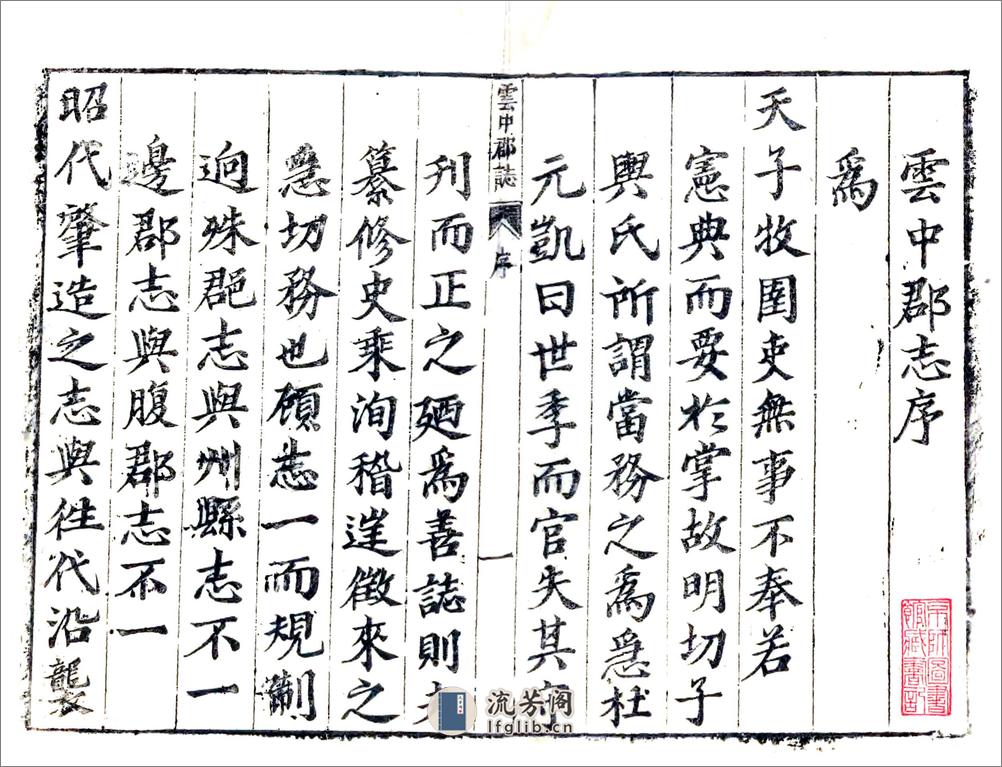 雲中郡志序
爲
天子牧圉吏無事不奉若
憲典而要於掌故明切子
輿氏所謂當務之爲急杜
元凱曰世季而官失其守
雲中郡誌 序 一
刊而正之廼爲善誌則
纂修史乘洵稽徵來之
急切務也顧志一而規制
逈殊郡志與州縣志不一
邊郡志與腹郡志不一
昭代肇造之志與徃代沿襲
京師圖書
館藏書記
流芳阁
lfglib.cn